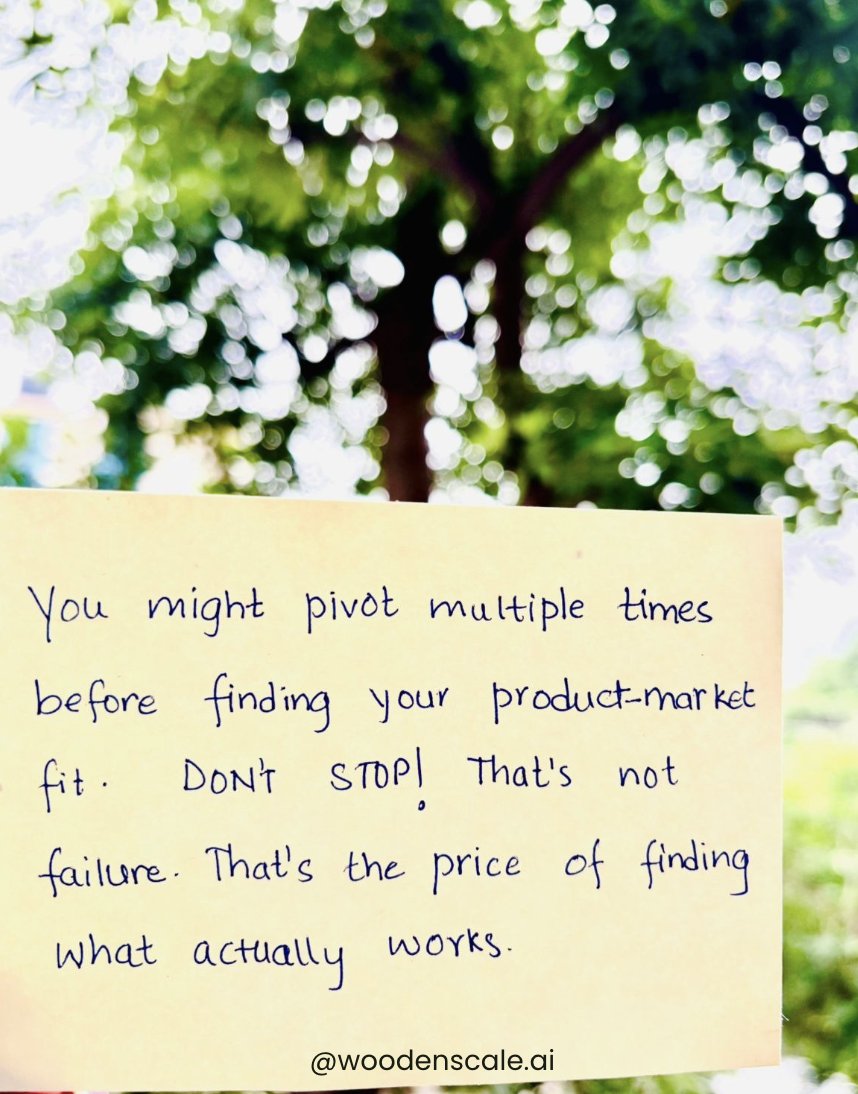 You might pivot multiple times
before finding your product-market
fit. DON'T STOP! That's not
failure. That's the price of finding
what actually works.
@woodenscale.ai